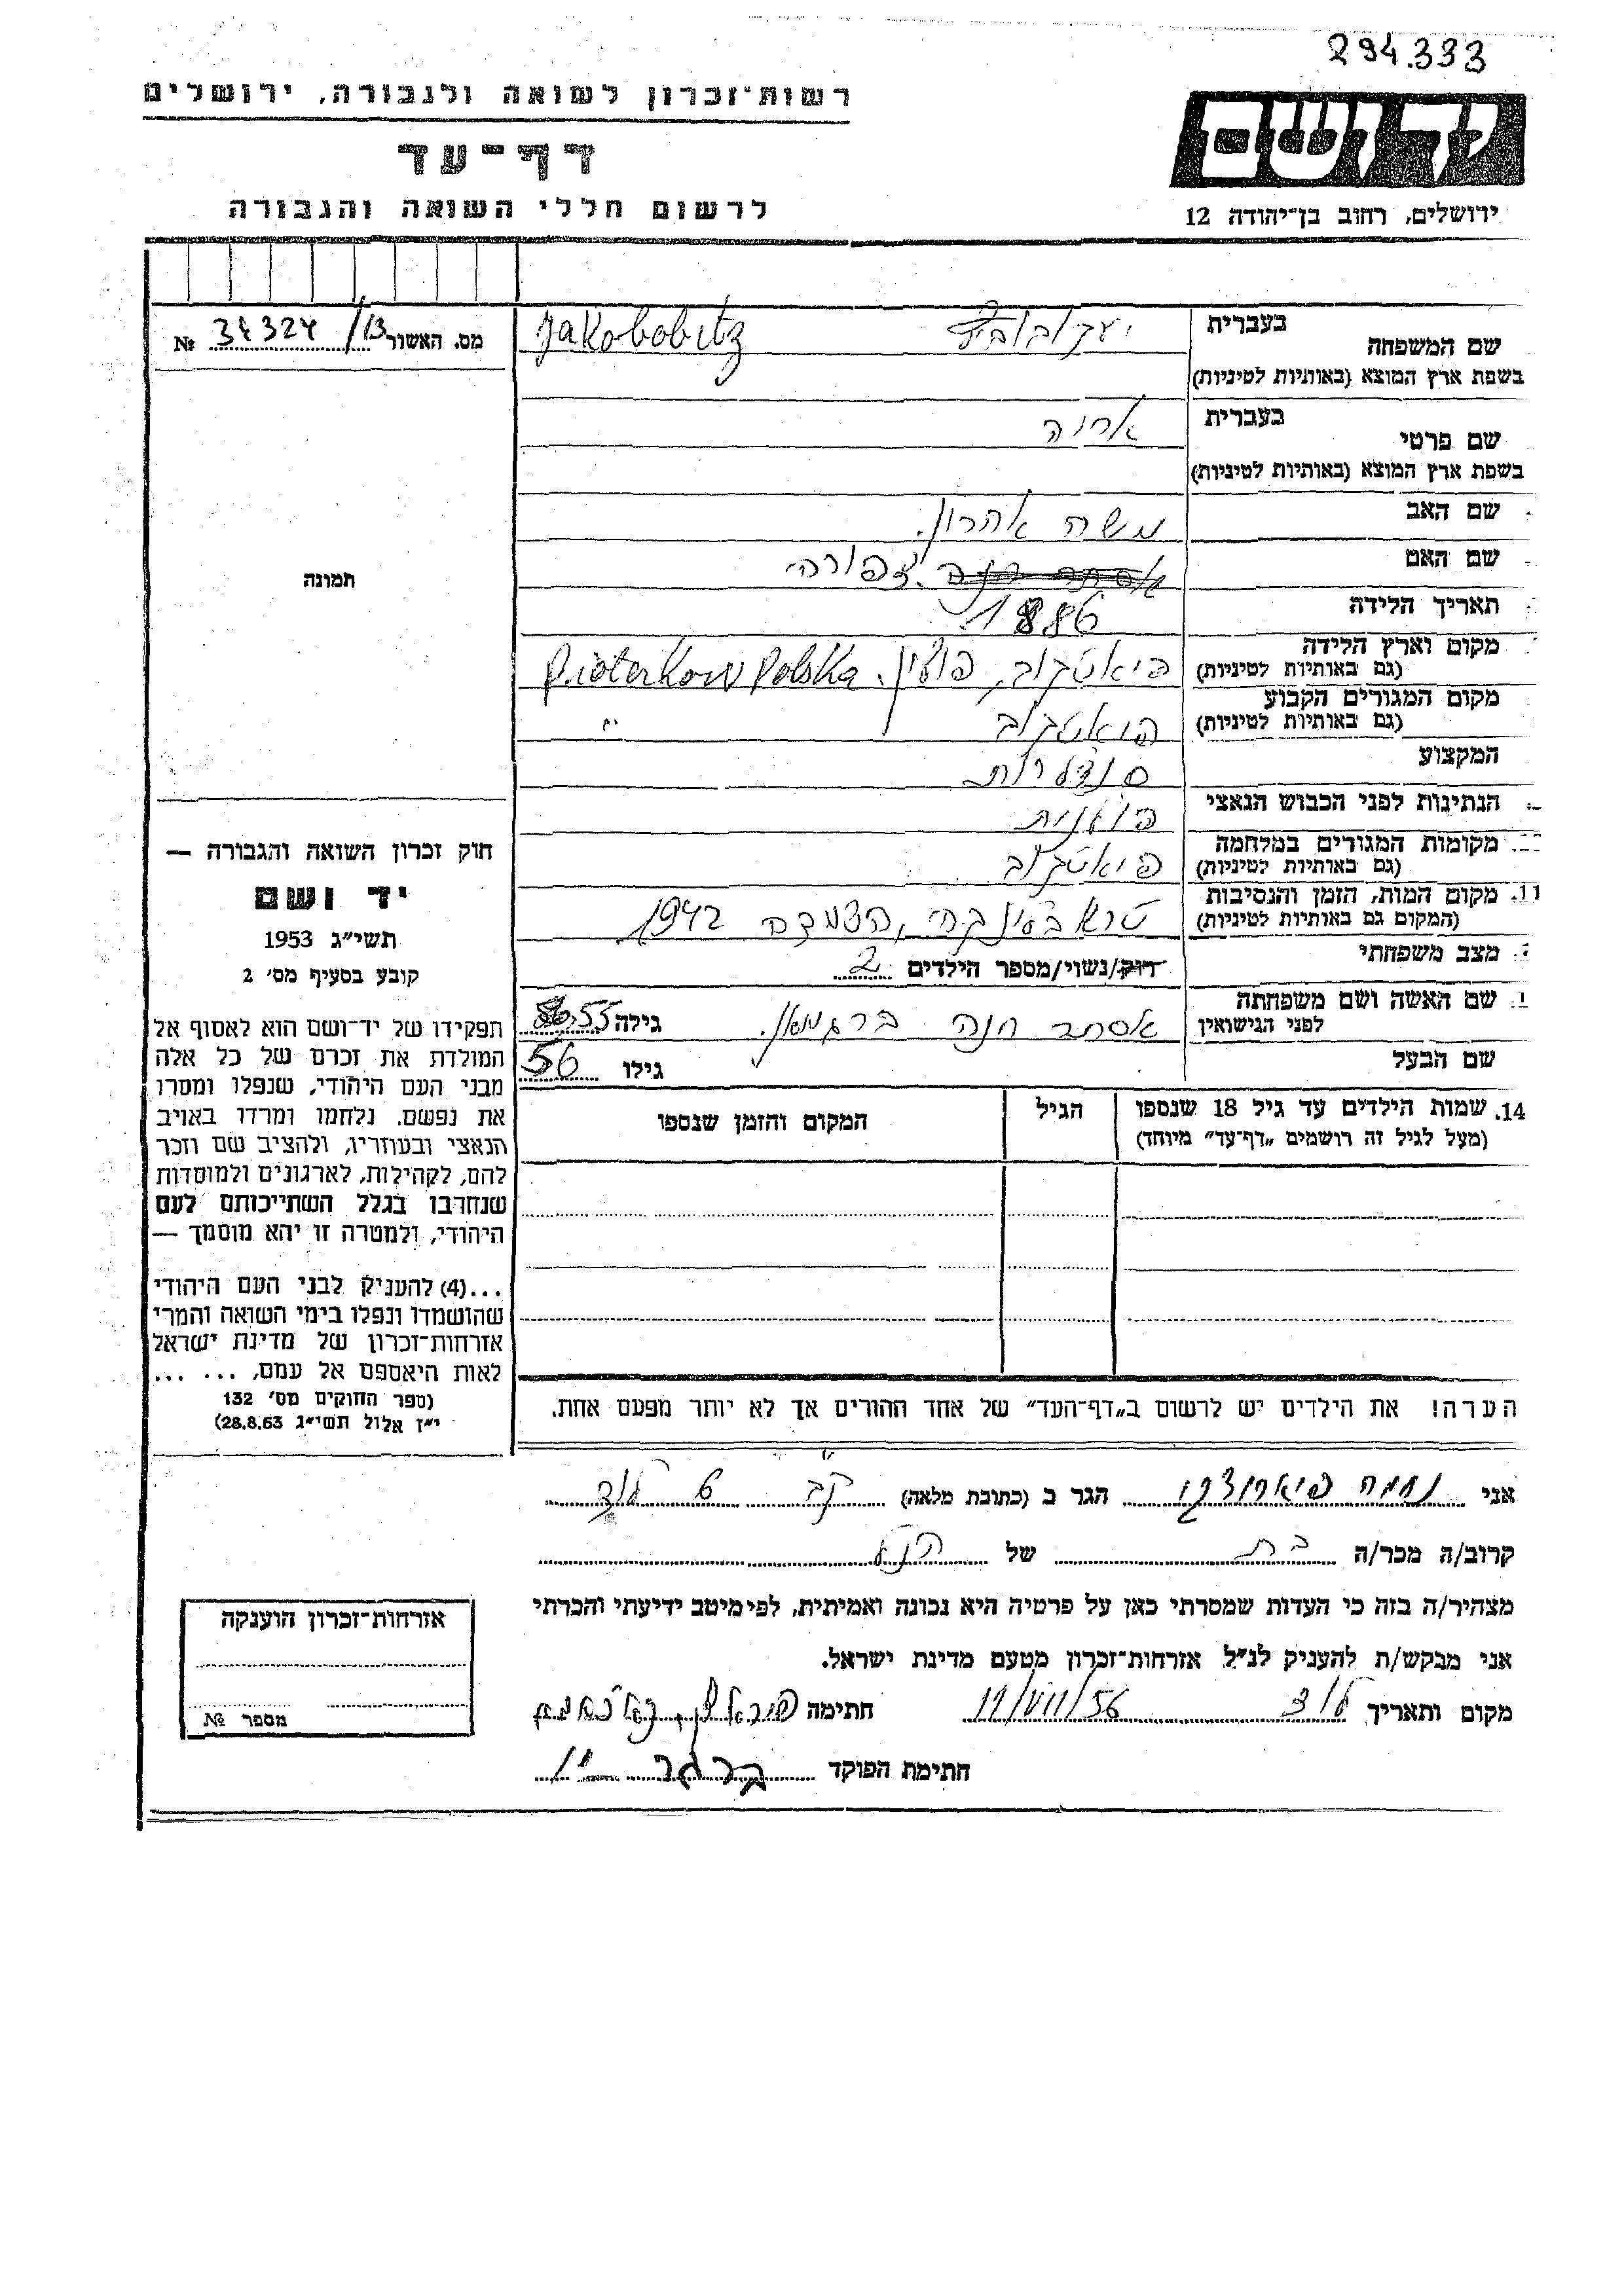 294.333
רשות־זכרון לשואה ולגבורה, ירושלים
דף־עד
לרשום חללי השואה והגבורה
ידושם
ירושלים, רחוב בן־יהודה 12
מס. האשור 34324/13 №
שם המשפחה בעברית יעקובוביץ Jakobobitz
בשפת ארץ המוצא (באותיות לטיניות)
שם פרטי בעברית אריה
בשפת ארץ המוצא (באותיות לטיניות)
שם האב משה אהרון.
שם האם אסתר חנה צפורה.
תאריך הלידה 1886
מקום וארץ הלידה (גם באותיות לטיניות) פיאטקוב, פולין. Pioterkow Polska
מקום המגורים הקבוע (גם באותיות לטיניות) פיאטקוב "
המקצוע סנדלרות
הנתינות לפני הכבוש הנאצי פולנית
מקומות המגורים במלחמה (גם באותיות לטיניות) פיאטקוב
11. מקום המות, הזמן והנסיבות (המקום גם באותיות לטיניות) טראבלינקה, השמדה 1942.
מצב משפחתי רוק/נשוי/מספר הילדים 2
שם האשה ושם משפחתה לפני הנישואין אסתר חנה ברגמאן. גילה 55
שם הבעל גילו 56
14. שמות הילדים עד גיל 18 שנספו (מעל לגיל זה רושמים „דף־עד" מיוחד) הגיל המקום והזמן שנספו
הערה! את הילדים יש לרשום ב„דף־העד" של אחד ההורים אך לא יותר מפעם אחת.
תמונה
חוק זכרון השואה והגבורה —
יד ושם
תשי״ג 1953
קובע בסעיף מס׳ 2
תפקידו של יד־ושם הוא לאסוף אל
המולדת את זכרם של כל אלה
מבני העם היהודי, שנפלו ומסרו
את נפשם, נלחמו ומרדו באויב
הנאצי ובעוזריו, ולהציב שם וזכר
להם, לקהילות, לארגונים ולמוסדות
שנחרבו בגלל השתייכותם לעם
היהודי, ולמטרה זו יהא מוסמך —
...(4) להעניק לבני העם היהודי
שהושמדו ונפלו בימי השואה והמרי
אזרחות־זכרון של מדינת ישראל
לאות היאספם אל עמם, ... ...
(ספר החוקים מס׳ 132
י״ז אלול תשי״ג 28.8.53)
אני נחמה הגר ב (כתובת מלאה) ט לוד
קרוב/ה מכר/ה בת של הנ״ל
מצהיר/ה בזה כי העדות שמסרתי כאן על פרטיה היא נכונה ואמיתית, לפי מיטב ידיעתי והכרתי
אני מבקש/ת להעניק לנ״ל אזרחות־זכרון מטעם מדינת ישראל.
מקום ותאריך לוד 19/VII/56 חתימה
חתימת הפוקד ברגר
אזרחות־זכרון הוענקה
מספר №